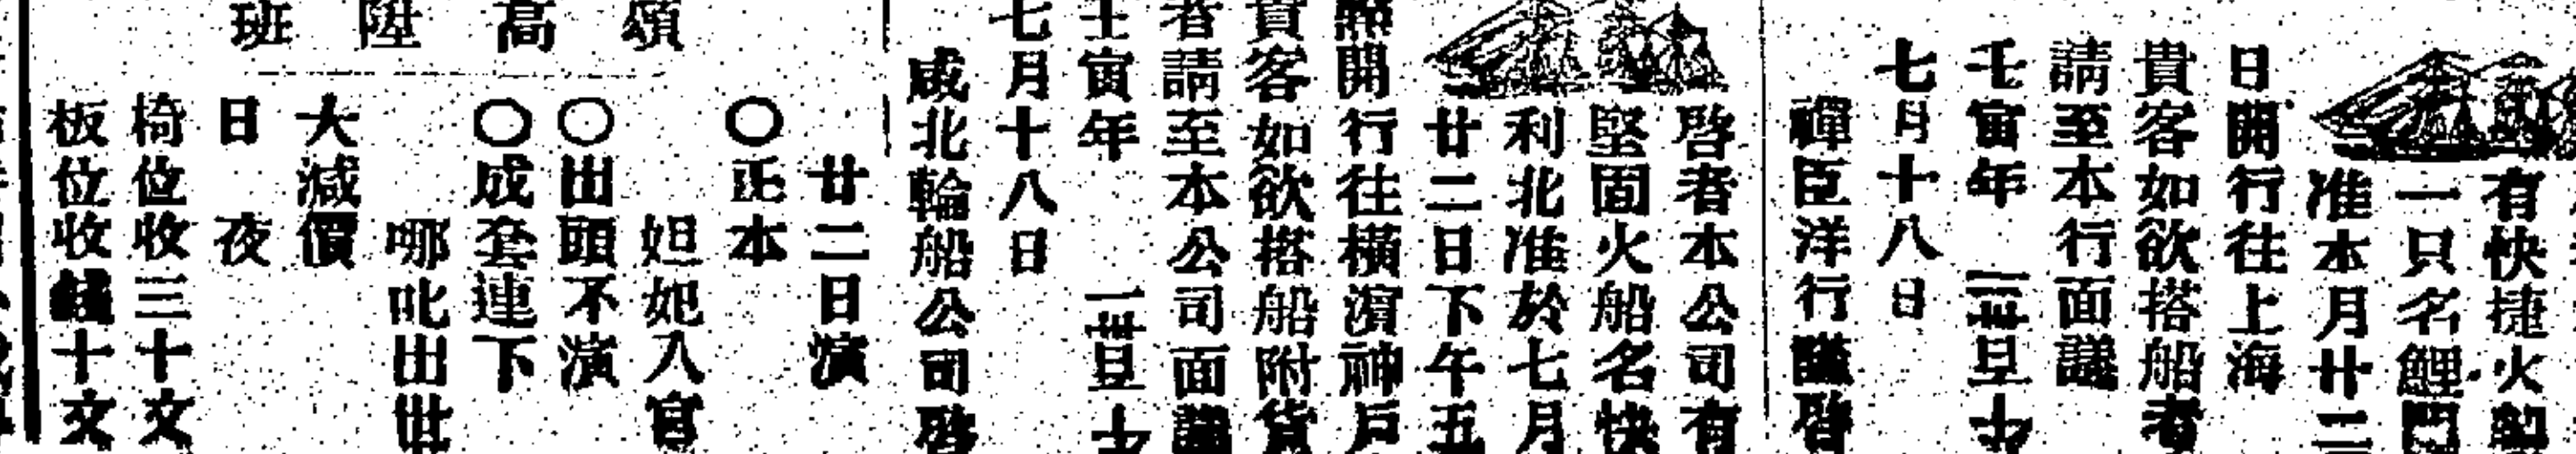 有快捷火船
一只名鯉門
准本月廿二
日開行往上海
貴客如欲搭船者
請至本行面議
壬寅年
七月十八日
禪臣洋行謹啓
啓者本公司有
堅固火船名快
利北准於七月
廿二日下午五
點開行往橫濵神戶
貴客如欲搭船附貨
者請至本公司面議
壬寅年
七月十八日
咸北輪船公司啓
頌高陞班
廿二日演
〇正本
妲妃入宮
〇出頭不演
〇成套連下
哪叱出世
大減價
日夜
椅位收三十文
板位收錢十文